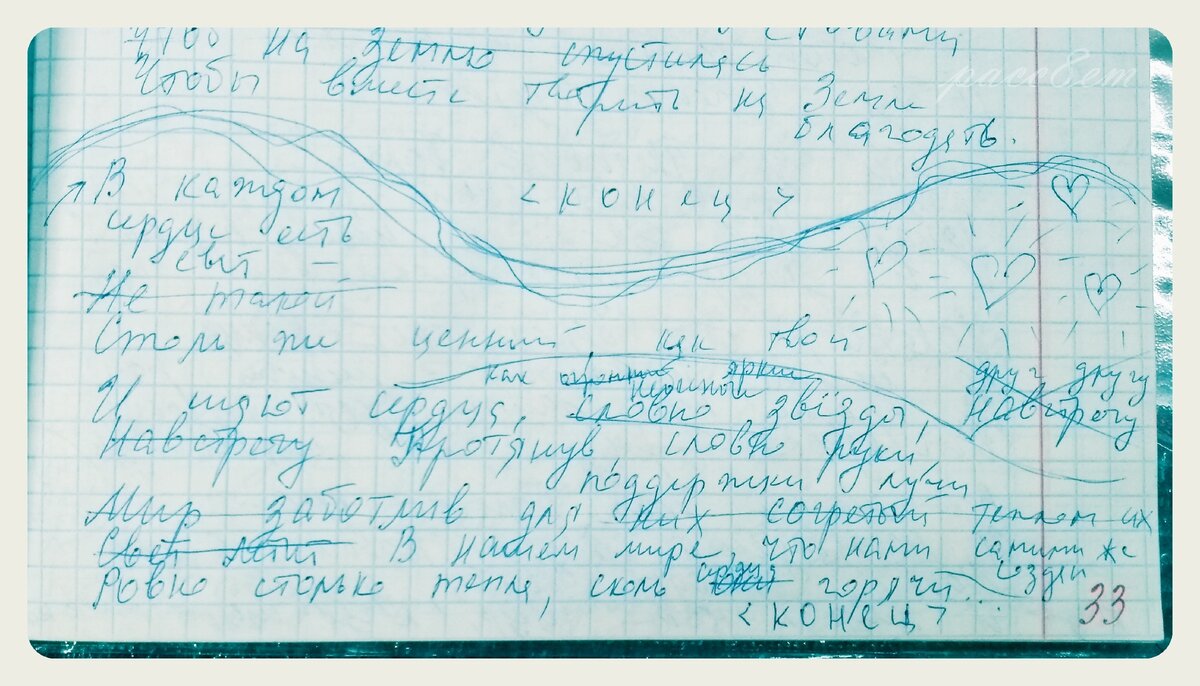 Чтоб на Землю спустилась
Чтобы вместе творить на Земле
благодать.
<конец>
В каждом
сердце есть
свет –
Не такой
Столь же ценный как твой
как огромный яркий
неоновой
друг другу
И сияют сердца, словно звёзды, навстречу
Навстречу Протянув, словно руки,
поддержки лучи
Мир заботлив для них согретый теплом их
Свет В нашем мире, что нами самими же
создан
Ровно столько тепла, сколь сердца горячи...
<конец>
33
рассвет